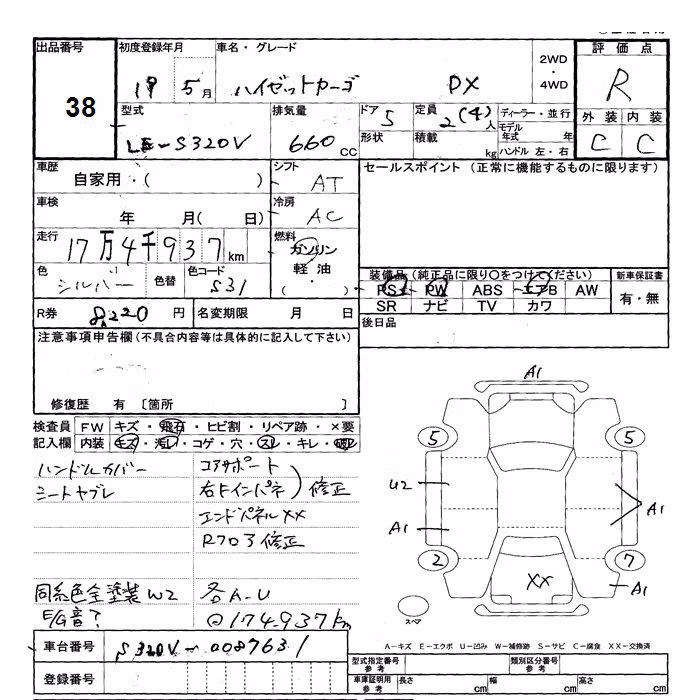 出品番号 初度登録年月 車名・グレード 評価点
38 19 5月 ハイゼットカーゴ DX 2WD・4WD R
型式 排気量 ドア 5 定員 2(4)人 ディーラー・並行 外装 内装
LE-S320V 660 CC 形状 積載 kg モデル年式 年 ハンドル 左・右 C C
車歴 シフト セールスポイント (正常に機能するものに限ります)
自家用・( ) AT
車検 冷房
年 月( 日) AC
走行 燃料
17万4千937km ガソリン
色 シルバー 色替 色コード S31 軽油 ( ・ )
装備品(純正品に限り○をつけてください) 新車保証書
PS PW ABS エアB AW 有・無
SR ナビ TV カワ
R券 8,220 円 名変期限 月 日 後日品
注意事項申告欄(不具合内容等は具体的に記入して下さい)
修復歴 有 [箇所 ]
A1
検査員 FW キズ・飛石・ヒビ割・リペア跡・×要
記入欄 内装 キズ・汚レ・コゲ・穴・スレ・キレ・
5 5
ハンドルカバー コアサポート
シートヤブレ 右Fインパネ)修正
エンドパネルXX
Rフロア修正
U2
A1 A1
2 7
XX
A1
同系色全塗装W2 各A-U
E/G音? ◎174.937km
スペア
車台番号 S320V-0087631
A-キズ E-エクボ U-凹み W-補修跡 S-サビ C-腐食 XX-交換済
型式指定番号 参考 類別区分番号 参考
登録番号 車庫証明用 参考 長さ cm 幅 cm 高さ cm